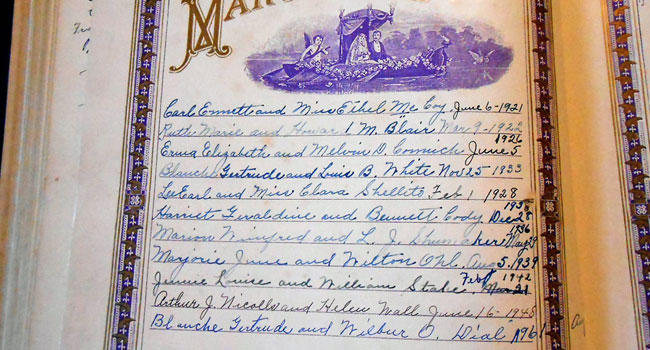 MAR
Carl Emmett and Miss Ethel Mc Coy June 6-1921
Ruth Marie and Howar I. M. Blair Mar 9-1922
1926
Erma Elizabeth and Melvin D. Cormick June 5
Blanche Gertrude and Louis B. White Nov 25 1933
LeEarl and Miss Clara Shellito Feb 1 1928
1935
Harriet Geraldine and Bennett Cody Dec 28
1936
Marion Winfred and L. J. Shumaker May 29
Marjorie June and Wilton Ohl. Aug 5. 1939
Feb 1942
Jennie Louise and William Stake. 21
Arthur J. Nicolls and Helen Wall June 16-1945
Blanche Gertrude and Wilbur O. Dial 1961